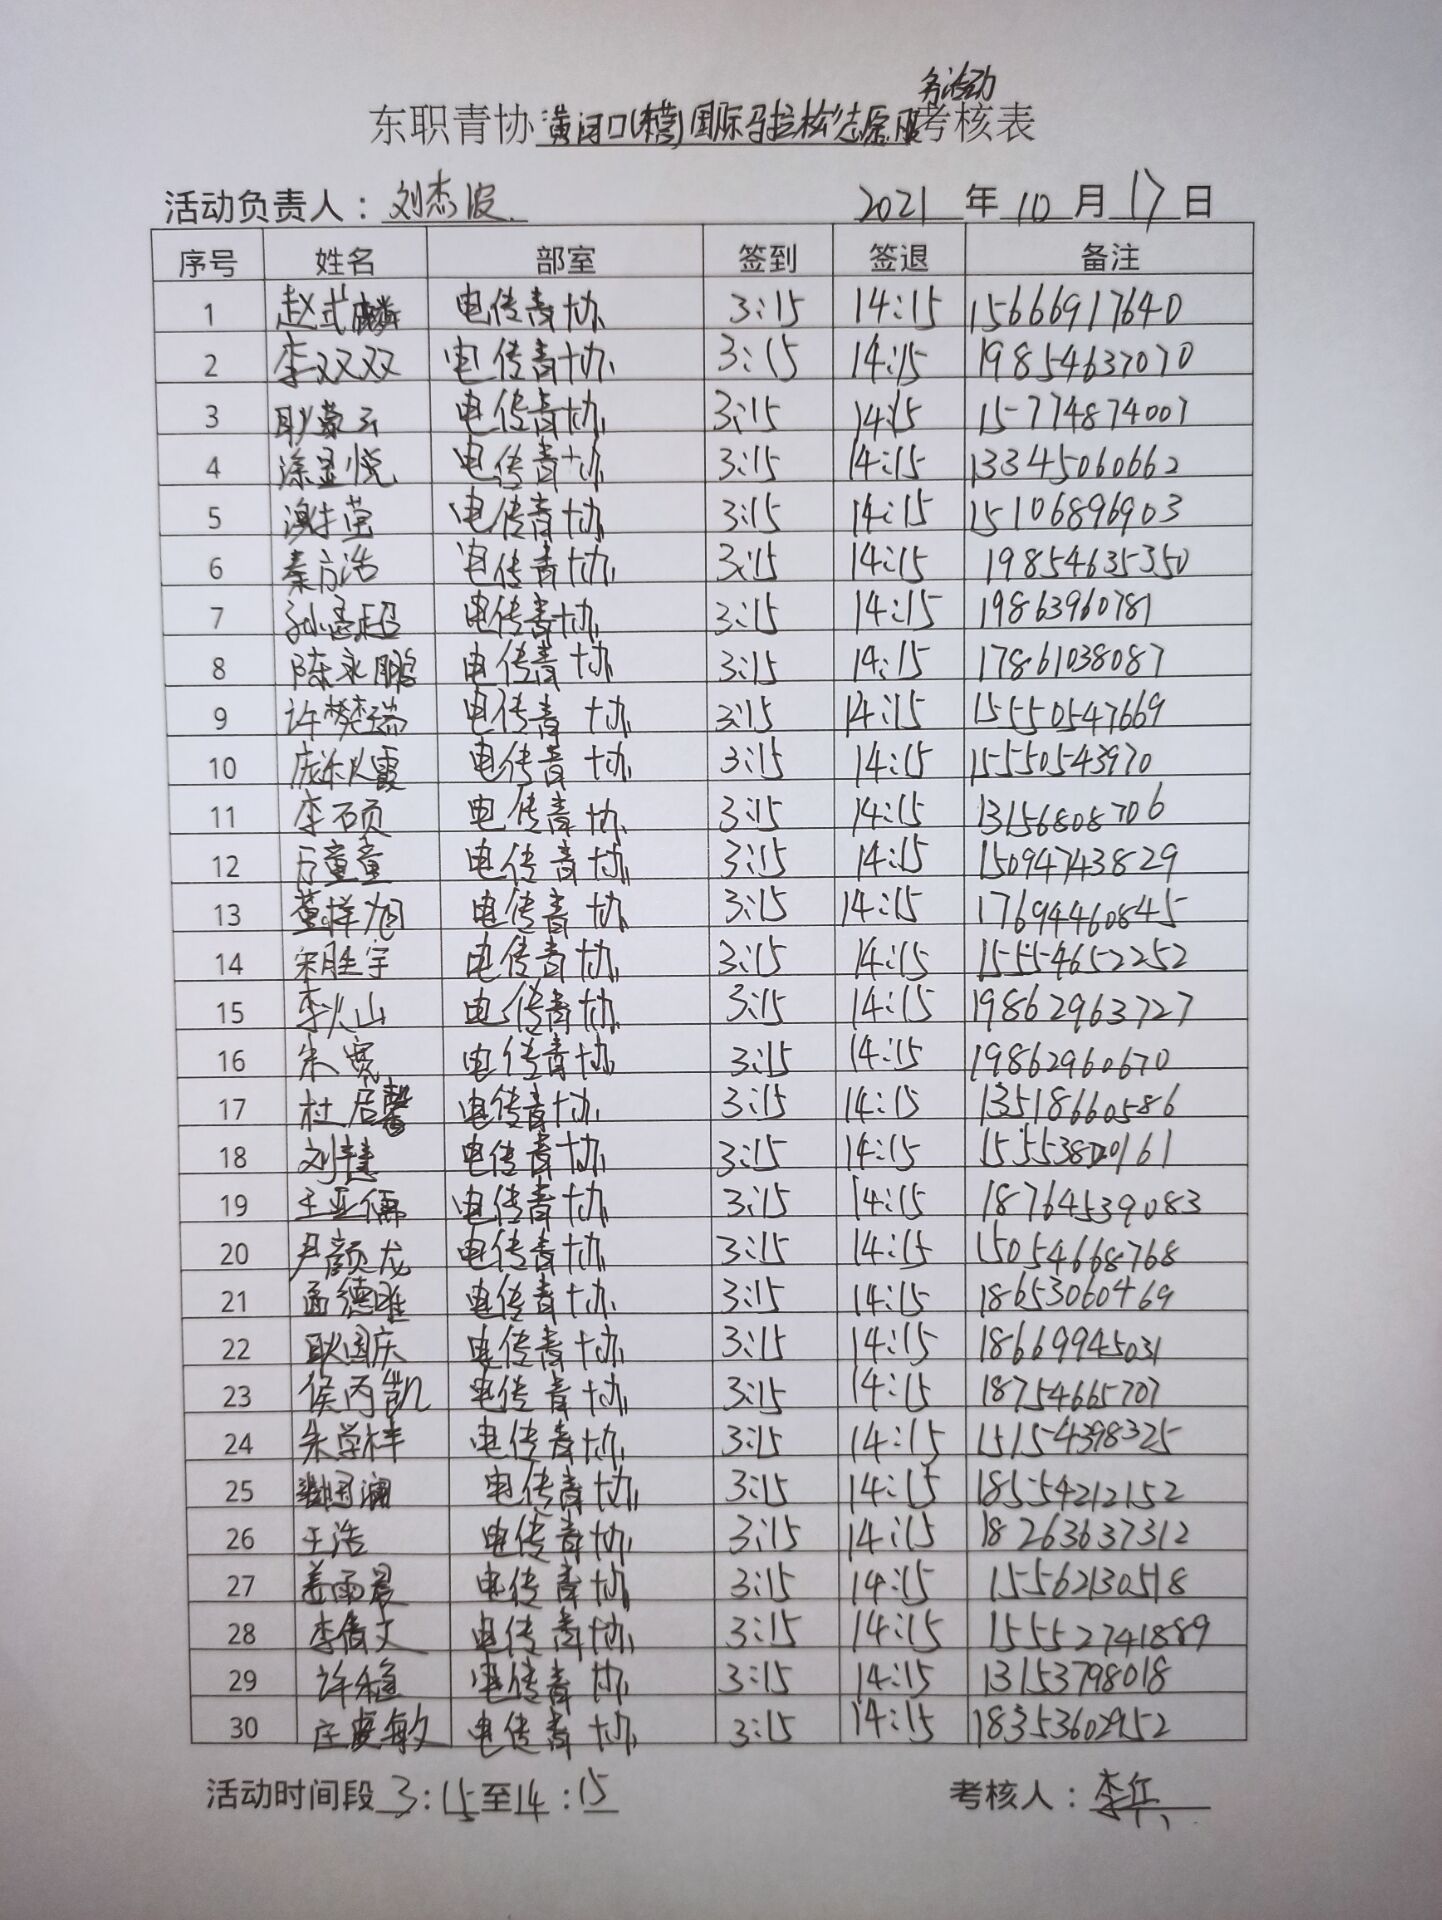 务活动
东职青协黄河口(东营)国际马拉松"志愿服考核表
活动负责人：刘杰波 2021 年 10 月 17 日
序号 姓名 部室 签到 签退 备注
1 赵式麟 电传青协 3:15 14:15 15666917640
2 李双双 电传青协 3:15 14:15 19854637070
3 耿蒙云 电传青协 3:15 14:15 15774874007
4 涂显悦 电传青协 3:15 14:15 13345060662
5 谢莹 电传青协 3:15 14:15 15106896903
6 秦方浩 电传青协 3:15 14:15 19854635350
7 孙孟超 电传青协 3:15 14:15 19863960781
8 陈永鹏 电传青协 3:15 14:15 17861038087
9 许梦瑞 电传青协 3:15 14:15 15550547669
10 电传青协 3:15 14:15 15550543970
11 李硕 电传青协 3:15 14:15 13156808706
12 万童童 电传青协 3:15 14:15 15094743829
13 董祥旭 电传青协 3:15 14:15 17694460845
14 宋胜宇 电传青协 3:15 14:15 15554652252
15 李火山 电传青协 3:15 14:15 19862963727
16 朱宽 电传青协 3:15 14:15 19862960670
17 杜启馨 电传青协 3:15 14:15 13518660586
18 电传青协 3:15 14:15
19 王亚儒 电传青协 3:15 14:15 18764539083
20 尹颜龙 电传青协 3:15 14:15 15054668768
21 孟德旺 电传青协 3:15 14:15 18653060469
22 耿国庆 电传青协 3:15 14:15 18669945031
23 侯丙凯 电传青协 3:15 14:15 18754665707
24 朱学祥 电传青协 3:15 14:15 15154398325
25 电传青协 3:15 14:15 18554212152
26 王浩 电传青协 3:15 14:15 18263637312
27 姜雨晨 电传青协 3:15 14:15 15562130518
28 李倩文 电传青协 3:15 14:15 15552741889
29 许植 电传青协 3:15 14:15 13153798018
30 庄虔敏 电传青协 3:15 14:15 18353602952
活动时间段 3:15至14:15 考核人：李兵